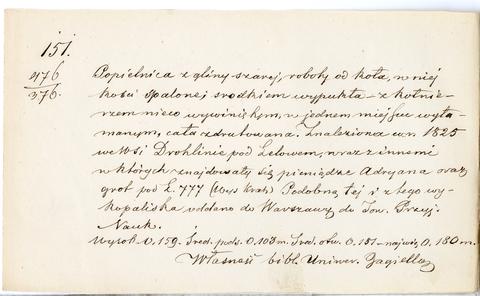 151.
476
376.
Popielnica z gliny szarej, roboty od koła, w niej
kości spalone, środkiem wypukła – z kołnie-
rzem nieco wywiniętym, w jednem miejscu wyła-
manym, cała zdrutowana. Znaleziona w r. 1825
we wsi Drohlinie pod Lelowem, wraz z innemi
w których znajdowały się pieniądze Adryana oraz
grot pod L. 777 (Wyst. Krak) Podobną tej i z tego wy-
kopaliska oddano do Warszawy do Tow. Przyj.
Nauk.
Wysok. 0,159. Śred. pods. 0,103 m. Śred. otw. 0.151 – najwięk. 0.180 m.
Własność bibl. Uniwer. Jagiell.